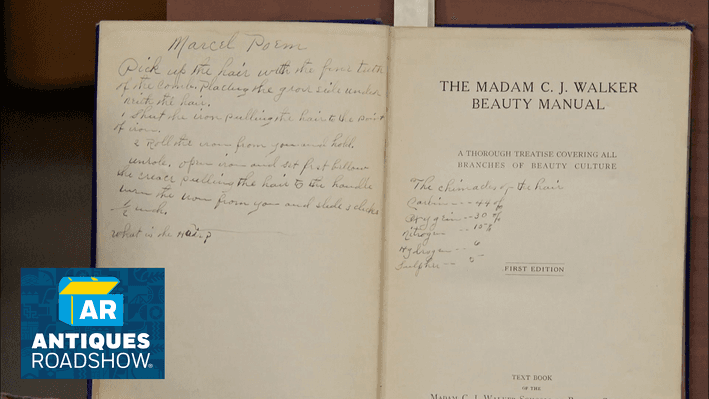 Marcel Poem
Pick up the hair with the fine teeth
of the comb. Placing the groov side under
neith the hair.
1 Shut the iron pulling the hair to the point
of iron.
2 Roll the iron from you and hold.
unrole. open iron and set first bellow
the creat pulling the hair to the handle
turn the iron from you and slide & clicks
What is the
THE MADAM C. J. WALKER
BEAUTY MANUAL
A THOROUGH TREATISE COVERING ALL
BRANCHES OF BEAUTY CULTURE
The chimacles of the hair
Carbin --- 44 %
Oxygin -- 30 %
Nitrogin --
Hydrogen -- 6
Sulpher -- 5
FIRST EDITION
TEXT BOOK
OF THE
MADAM C. J. WALKER
AR
ANTIQUES
ROADSHOW